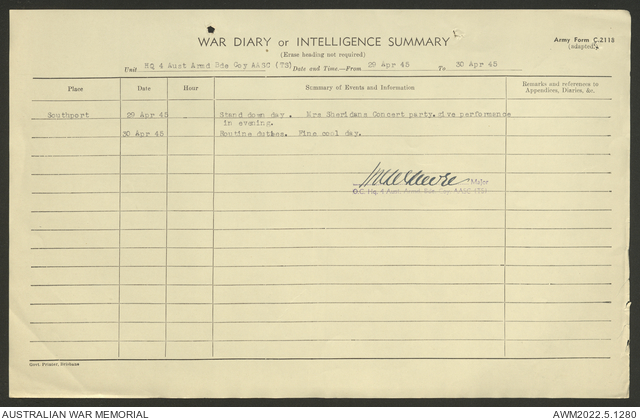 WAR DIARY or INTELLIGENCE SUMMARY
Army Form C.2118
(adapted)
(Erase heading not required)
Unit HQ 4 Aust Armd Bde Coy AASC (TS) Date and Time.—From 29 Apr 45 To 30 Apr 45
Place Date Hour Summary of Events and Information Remarks and references to
Appendices, Diaries, &c.
Southport 29 Apr 45 Stand down day. Mrs Sheridans Concert party give performance
in evening.
30 Apr 45 Routine duties. Fine cool day.
Major
O.C. Hq. 4 Aust. Armd. Bde Coy AASC (TS)
Govt. Printer, Brisbane
AUSTRALIAN WAR MEMORIAL
AWM2022.5.1280